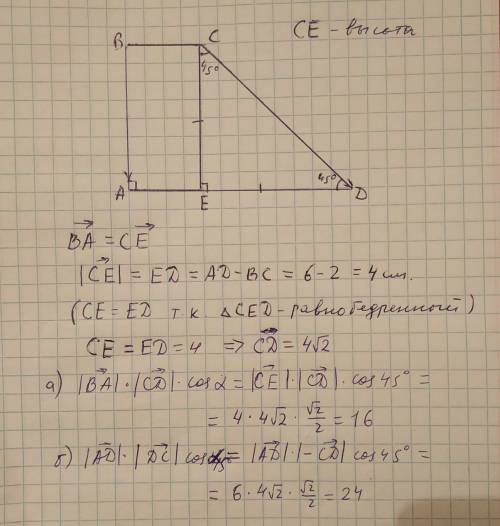 CE - высота
B C
45°
45°
A E D
BA→ = CE→
|CE→| = ED = AD - BC = 6 - 2 = 4 см.
(CE = ED т к ΔCED - равнобедренный)
CE = ED = 4 ⇒ CD→ = 4√2
а) |BA→| · |CD→| · cos α = |CE→| · |CD→| · cos 45° =
= 4 · 4√2 · √2/2 = 16
б) |AD→| · |DC→| cos = |AD→| · |-CD→| cos 45° =
= 6 · 4√2 · √2/2 = 24